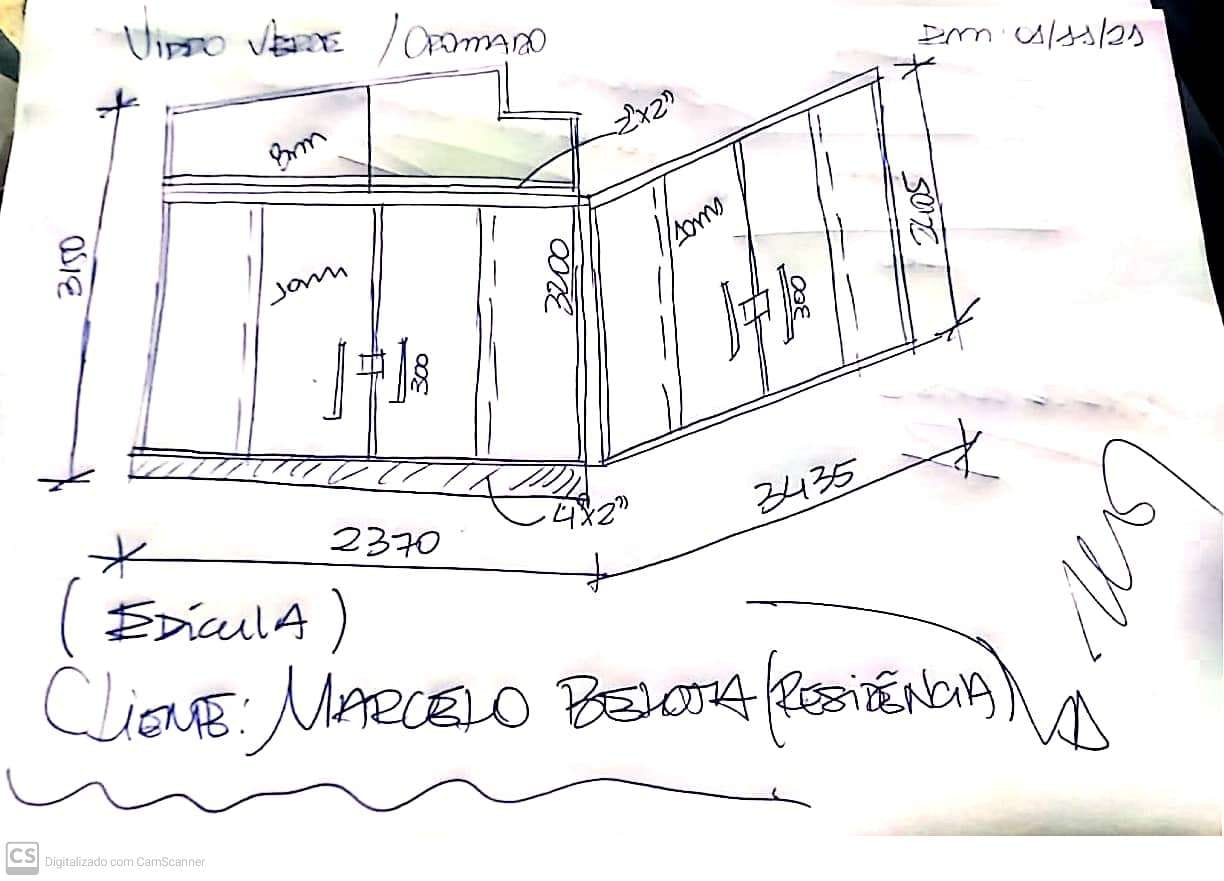 VIDRO VERDE / CROMADO
EM: 01/11/21
2"x2"
8mm
3150
10mm
3200
300
10mm
300
2405
4"x2"
2370
3435
(EDÍCULA)
CLIENTE: MARCELO (RESIDÊNCIA)
CS Digitalizado com CamScanner